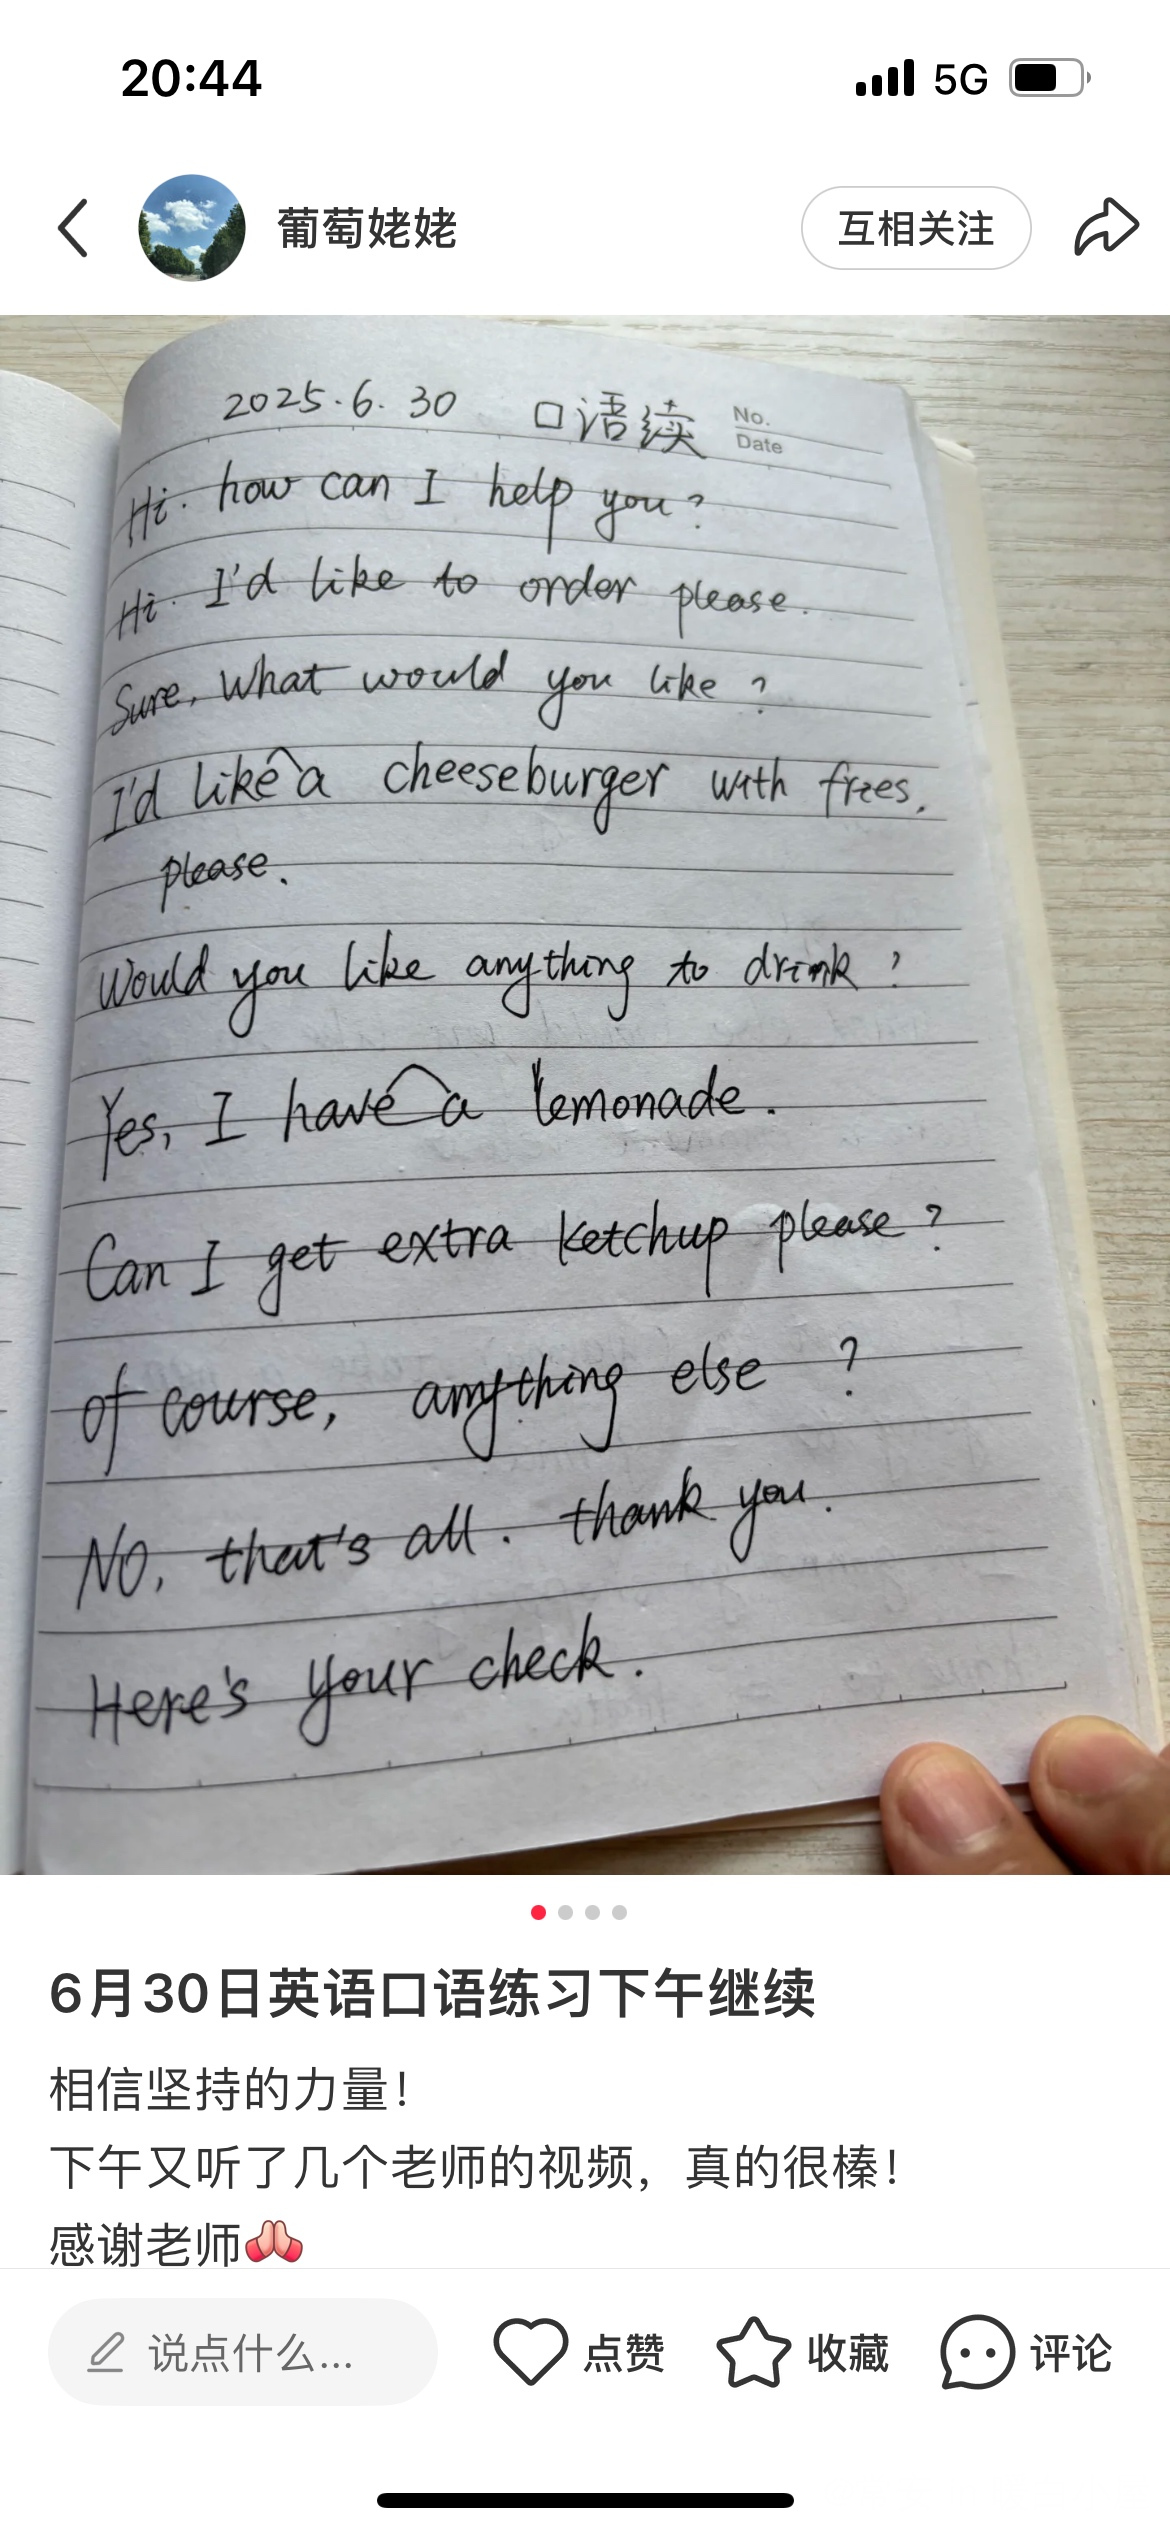 20:44
5G
葡萄姥姥
互相关注
2025.6.30 口语续
No.
Date
Hi. how can I help you?
Hi. I'd like to order please.
Sure, What would you like?
I'd like a cheeseburger with fries,
please.
Would you like anything to drink?
Yes, I have a lemonade.
Can I get extra ketchup please?
of course, anything else?
No, that's all. thank you.
Here's your check.
6月30日英语口语练习下午继续
相信坚持的力量！
下午又听了几个老师的视频，真的很榛！
感谢老师
说点什么...
点赞
收藏
评论